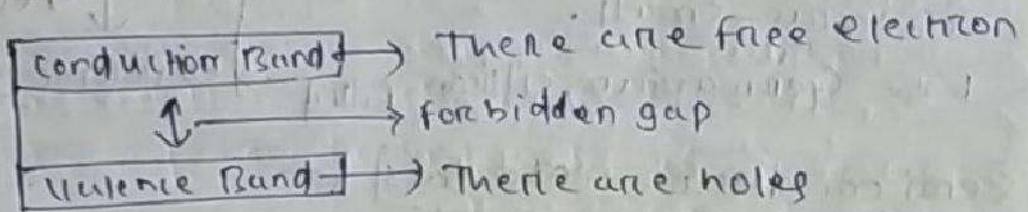 Conduction Band → There are free electron
↕ → forbidden gap
Valence Band → There are holes